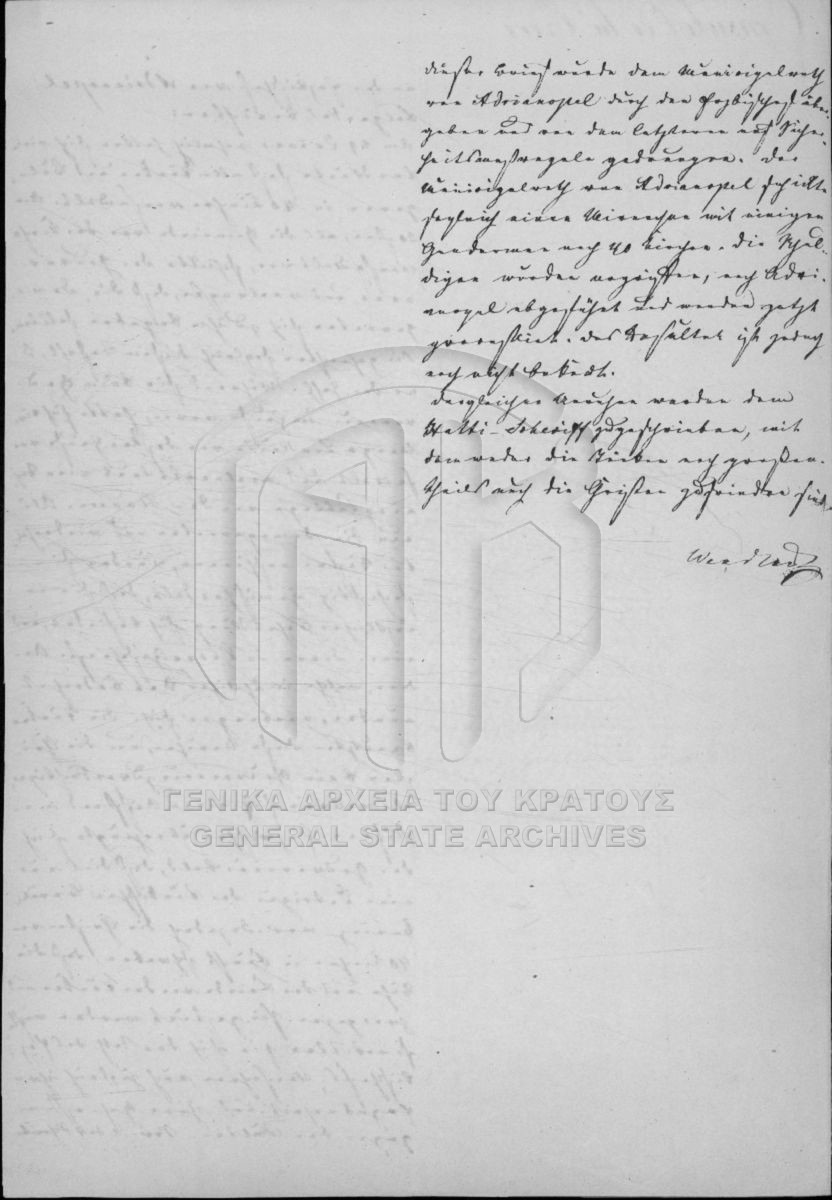 dieser Brief wurde dem Municipalrath
von Adrianopel durch den Erzbischof über-
geben und von dem letzteren auf Sicher-
heitsmaßregeln gedrungen. Der
Municipalrath von Adrianopel schickte
sogleich einen mit einigen
Gendarmen nach 40 Kirchen. Die Schul-
digen wurden ergriffen, nach Adri-
anopel abgeführt und werden jetzt
processiert. Das Resultat ist jedoch
noch nicht bekannt.
Dergleichen Unruhen werden dem
Hatti-Scheriff zugeschrieben, mit
dem weder die Türken noch großen-
theils auch die Christen zufrieden sind.
Wendland
ΓΕΝΙΚΑ ΑΡΧΕΙΑ ΤΟΥ ΚΡΑΤΟΥΣ
GENERAL STATE ARCHIVES